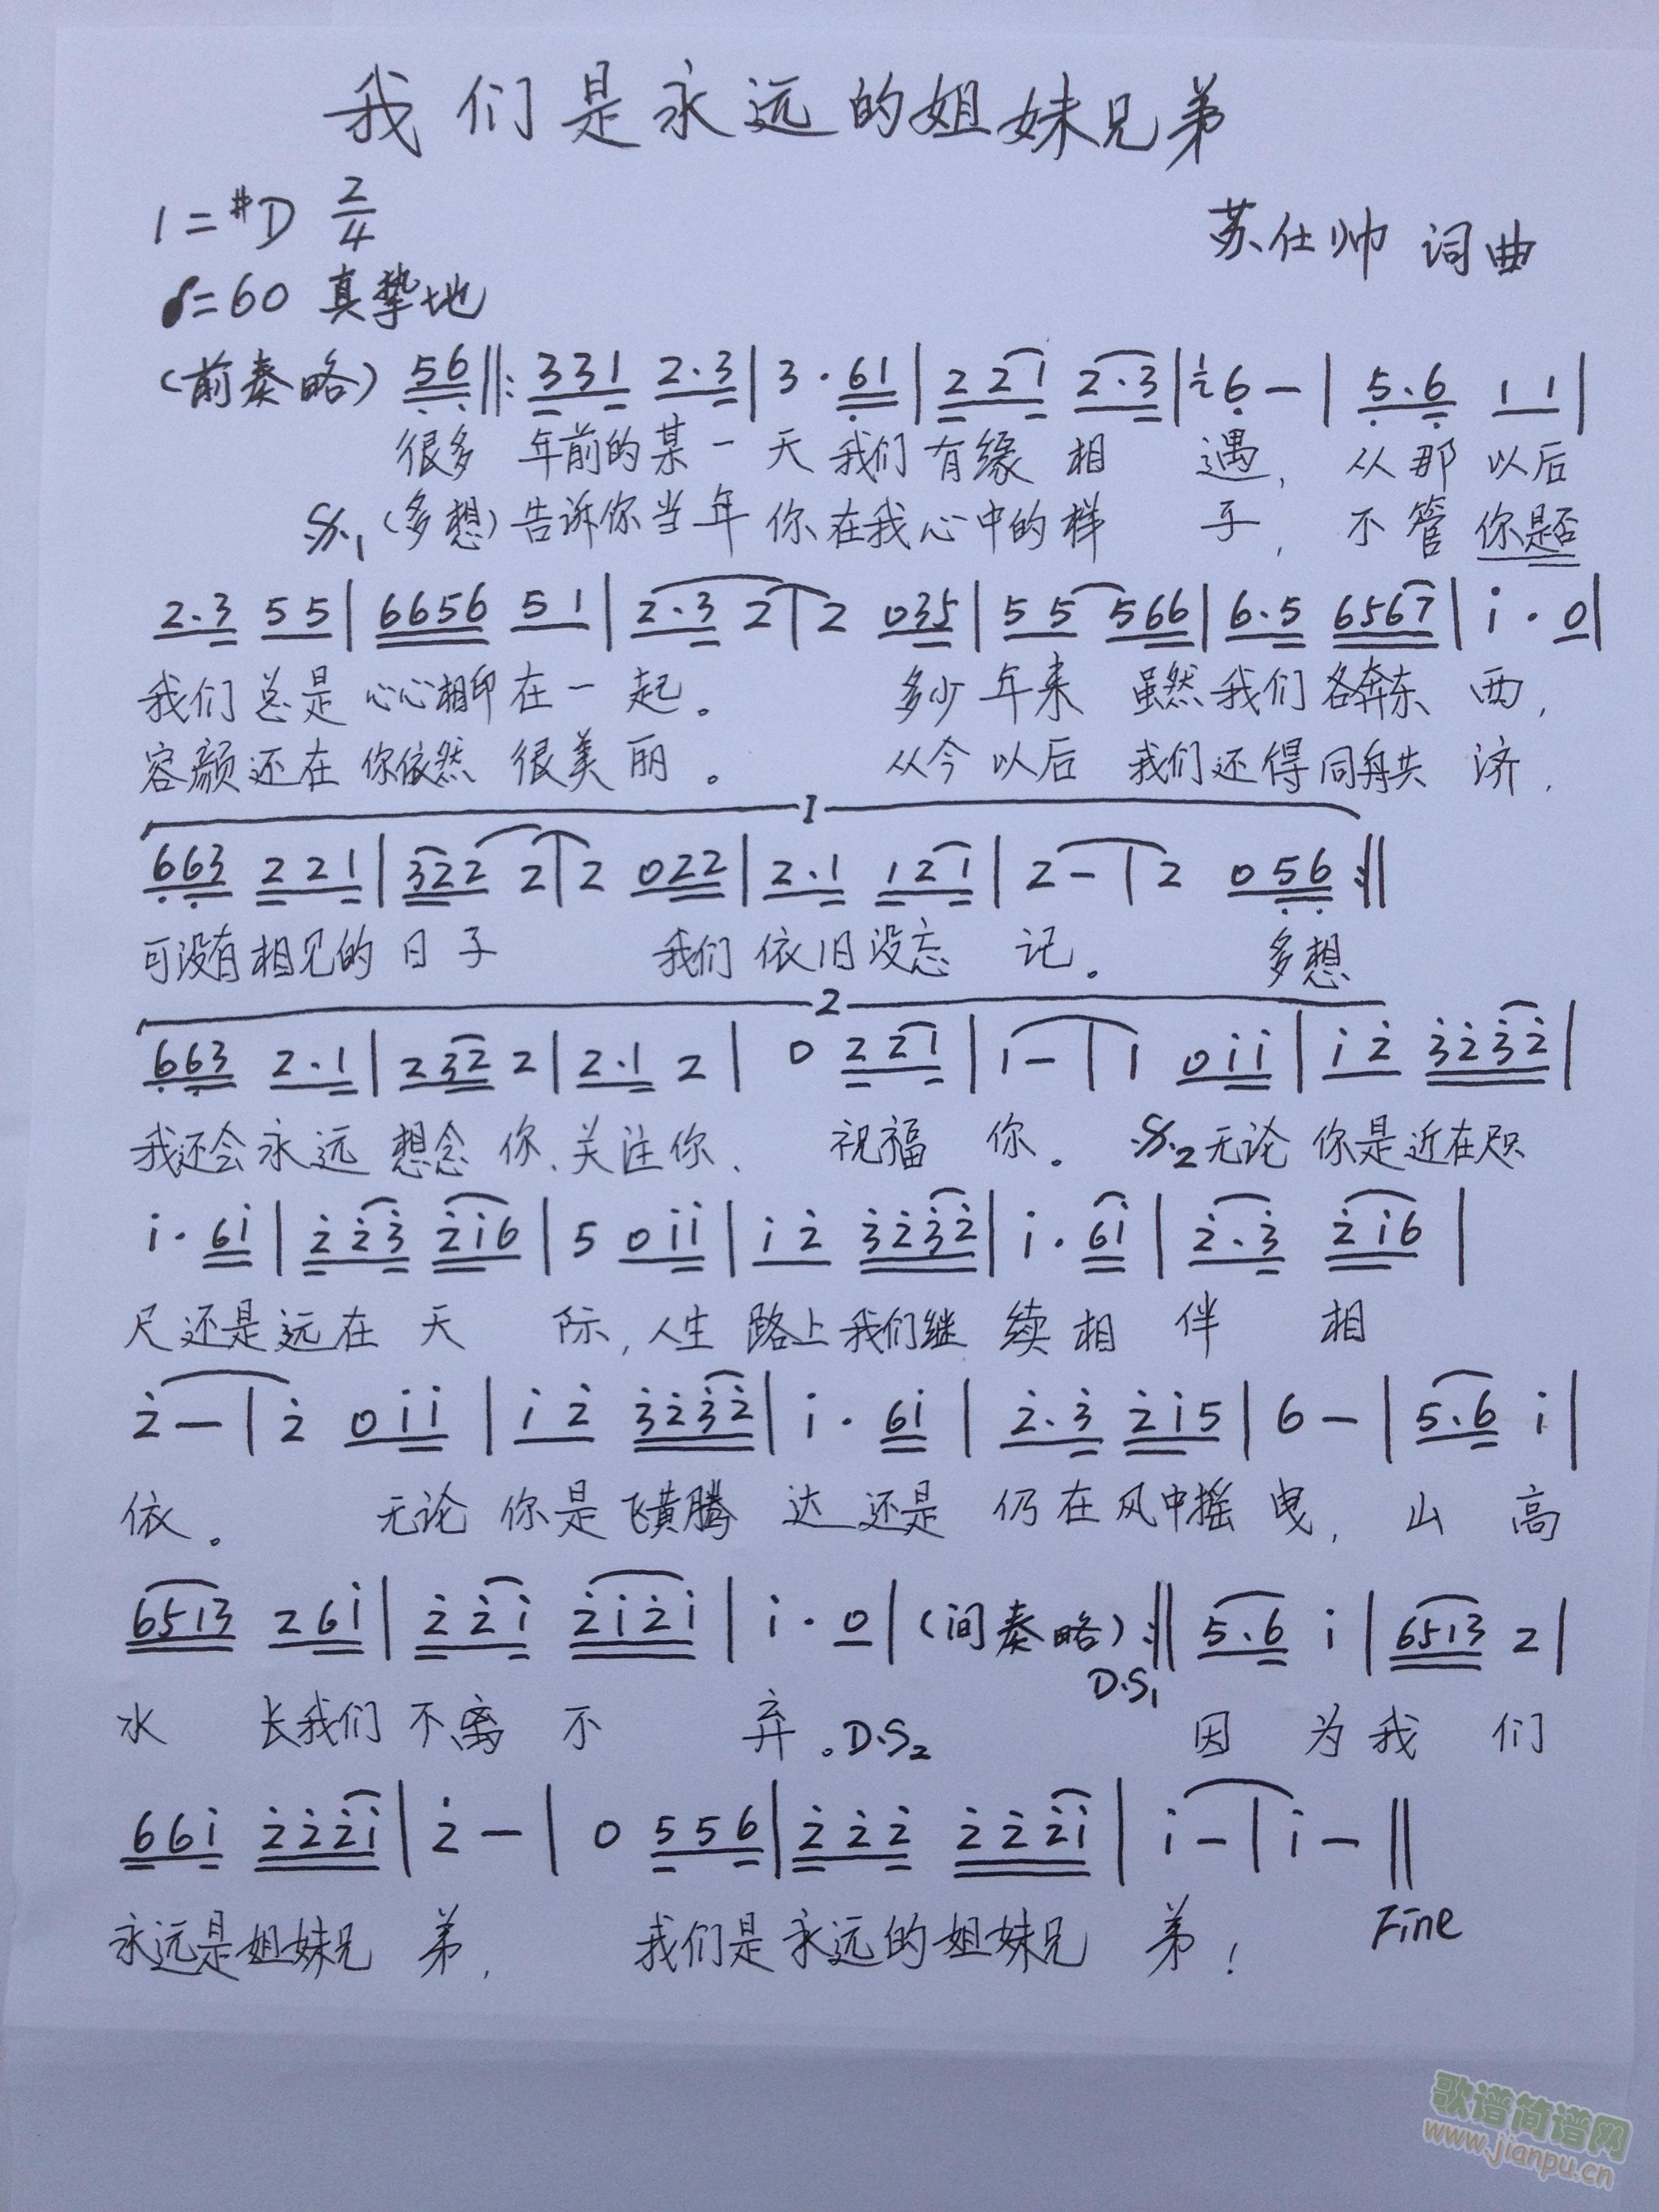 我们是永远的姐妹兄弟
1=#D 2/4
苏仕帅 词曲
♩=60 真挚地
(前奏略) 56‖: 331 2·3 | 3·61 | 221 2·3 | 6 - | 5·6 11 |
很多 年前的某一天 我们有缘相遇, 从那以后
𝄋1 (多想) 告诉你当年你在我心中的样子, 不管你是否
2·3 55 | 6656 51 | 2·3 2 | 2 035 | 55 566 | 6·5 6567 | i·0 |
我们总是心心相印在一起。 多少年来 虽然我们各奔东西,
容颜还在你依然很美丽。 从今以后 我们还得同舟共济,
1
663 221 | 322 2 | 2 022 | 2·1 121 | 2 - | 2 056 :‖
可没有相见的日子 我们依旧没忘记。 多想
2
663 2·1 | 232 2 | 2·1 2 | 0 221 | 1 - | 1 0ii | i2 3232 |
我还会永远想念你、关注你、 祝福你。 𝄋2 无论你是近在咫
i·6i | 223 2i6 | 5 0ii | i2 3232 | i·6i | 2·3 2i6 |
尺还是远在天际, 人生路上我们继续相伴相
2 - | 2 0ii | i2 3232 | i·6i | 2·3 2i5 | 6 - | 5·6 i |
依。 无论你是飞黄腾达还是仍在风中摇曳, 山高
6513 26i | 22i 2i2i | i·0 | (间奏略) :‖ 5·6 i | 6513 2 |
D.S1
水长我们不离不弃。D.S2 因为我们
66i 222i | 2 - | 0 556 | 222 222i | i - | i - ‖
永远是姐妹兄弟, 我们是永远的姐妹兄弟! Fine
歌谱简谱网
www.jianpu.cn